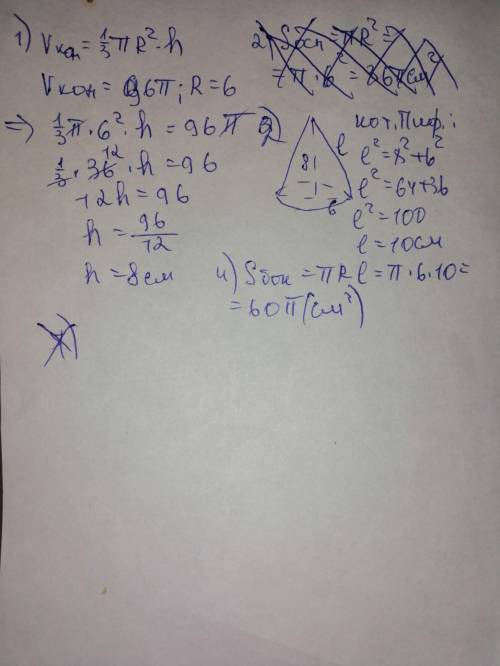 1) Vкон = 1/3 πR² · h
Vкон = 96π; R = 6
=> 1/3 π · 6² · h = 96π
1/3 · 36 12 · h = 96
12h = 96
h = 96/12
h = 8см
2) Sбоп = πR² =
= π · 6² = 36π см²
2)
8
l
6
по т. Пиф.:
l² = 8² + 6²
l² = 64 + 36
l² = 100
l = 10см
4) Sбок = πRl = π · 6 · 10 =
= 60π (см²)